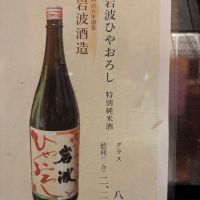 岩波ひやおろし
特別純米酒
グラス 八
徳利二合 二、二
岩波酒造
岩波
ひやおろし